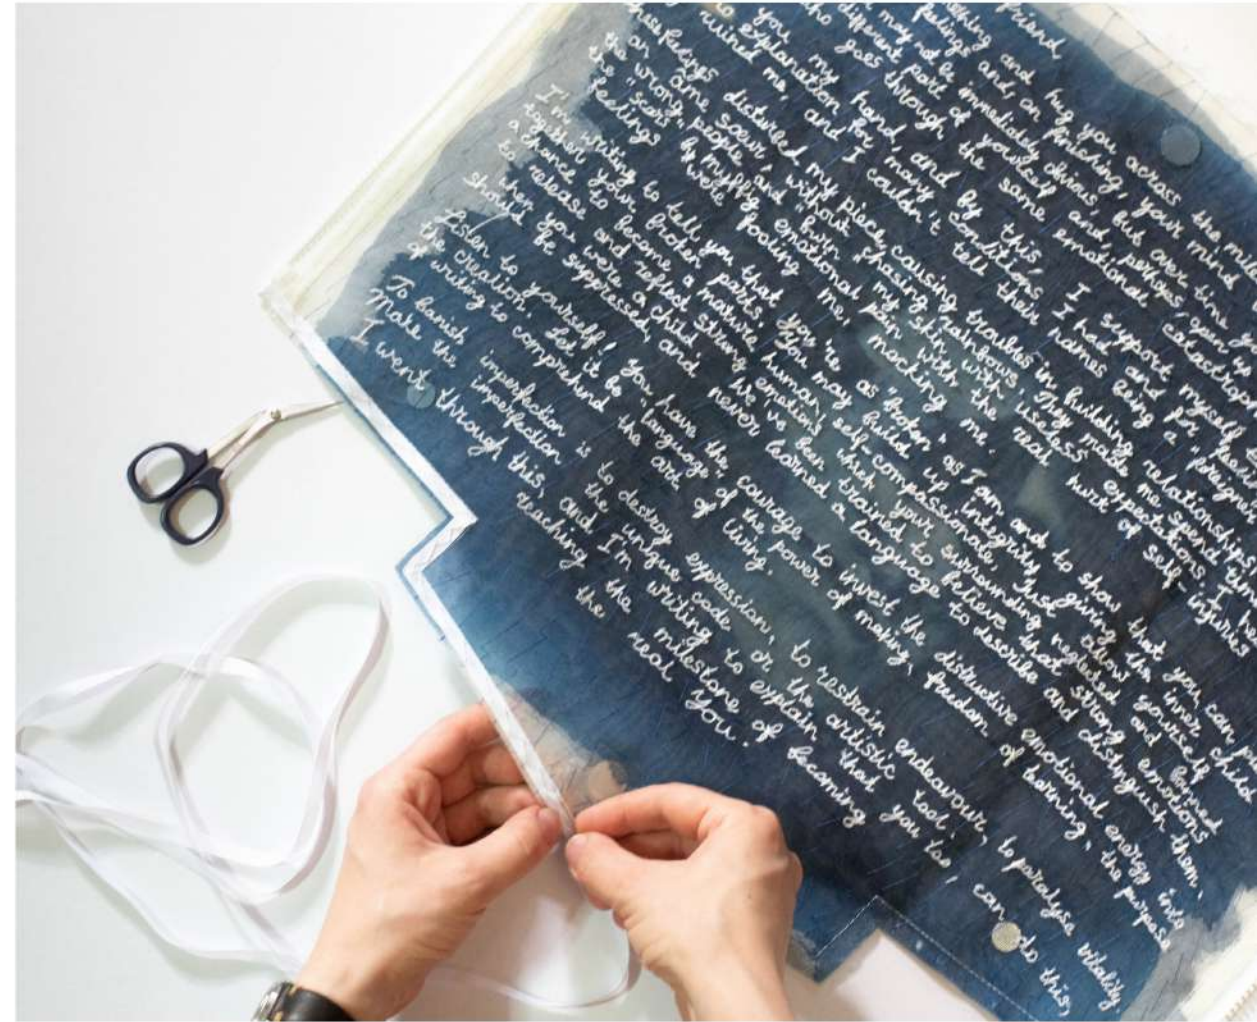 friend,
and hug you across the miles
feelings and, on finishing, your mind
may not be immediately obvious, but over time you
different part of yourself and, perhaps,
who goes through the same emotional
to you my hand and by this, I support myself
explanation for many conditions I had and for
ruined me, and I couldn't tell their names being a "foreigne
disturbed my piece, causing troubles in building relationships
the "âme sœur" without chasing rainbows They made me spend
on wrong people and "burn" my skin with useless expectations. I
the "scars" by emotional pain with the real hurt of self injuries
feelings were fooling me, mocking me.
I'm writing to tell you that you're as "broken" as I am and to show that you can
together your broken parts. You may build up integrity. Just giving the inner child
a chance to become a mature human, self-compassionate, and show yourself
to release and reflect strong emotions which your surrounding neglected and banned
when you were a child. We've been trained to believe that strong emotions
should be suppressed and never learned a language to describe and distinguish them.
Listen to yourself! You have the courage to invest the distructive emotional energy into
the creation. Let it be a language of the power of making, freedom of burning, the purpose
of writing to comprehend the art of living.
To banish imperfection is to destroy expression, to restrain endeavour, to paralyse vitality.
Make the imperfection the unique code or the artistic tool,
I went through this, and I'm writing to explain that you too, can do this,
reaching the milestone of becoming
the real you.